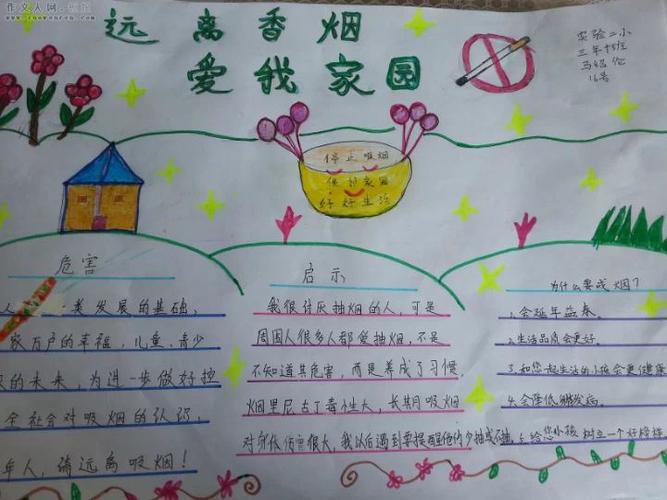 作文人网
www.zuowenren.com
远离香烟
爱我家园
实验二小
三年十班
16号
停止吸烟
保护家园
好好生活
危害
类发展的基础，
家万户的幸福，儿童、青少
的未来，为进一步做好控
全社会对吸烟的认识，
年人，请远离吸烟！
启示
我很讨厌抽烟的人，可是
周围人很多人都爱抽烟，不是
不知道其危害，而是养成了习惯。
烟里尼古丁毒性大，长期吸烟
对身体伤害很大，我以后遇到要提醒他们少抽或不抽。
为什么要戒烟？
1.会延年益寿。
2.生活品质会更好。
3.和您一起生活的小孩会更健康
4.会降低
5.给您小孩树立一个好榜样